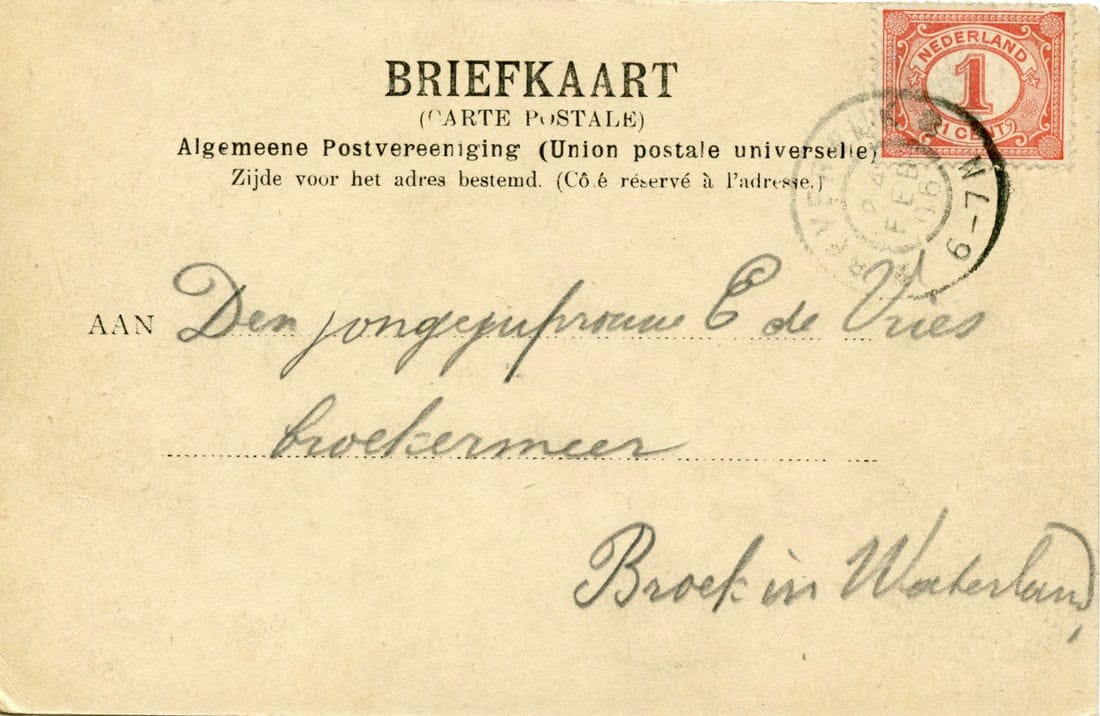 NEDERLAND
1
1 CENT
BRIEFKAART
(CARTE POSTALE)
Algemeene Postvereeniging (Union postale universelle)
Zijde voor het adres bestemd. (Côté réservé à l'adresse.)
24
FEB
06
6-7N
AAN Den jongejufrouw E de Vries
broekermeer
Broek in Waterland